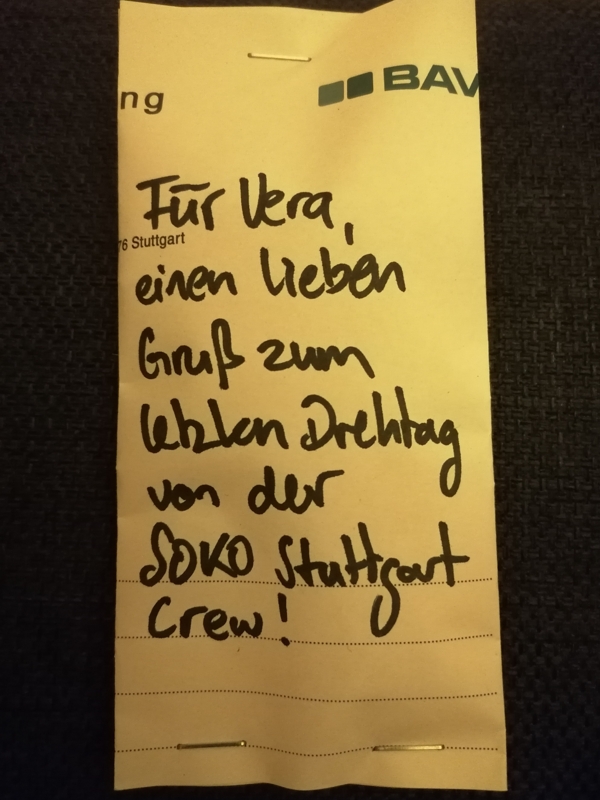 ng
BAV
Für Vera,
76 Stuttgart
einen lieben
Gruß zum
letzten Drehtag
von der
SOKO Stuttgart
Crew!